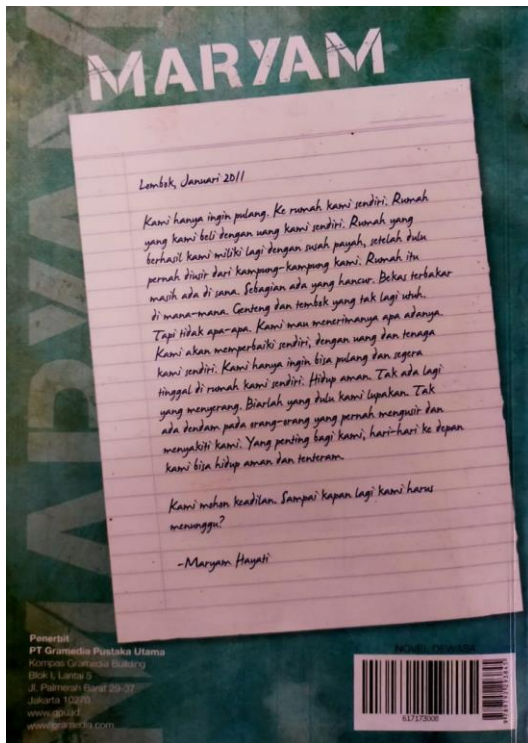 MARYAM
Lombok, Januari 2011
Kami hanya ingin pulang. Ke rumah kami sendiri. Rumah
yang kami beli dengan uang kami sendiri. Rumah yang
berhasil kami miliki lagi dengan susah payah, setelah dulu
pernah diusir dari kampung-kampung kami. Rumah itu
masih ada di sana. Sebagian ada yang hancur. Bekas terbakar
di mana-mana. Genteng dan tembok yang tak lagi utuh.
Tapi tidak apa-apa. Kami mau menerimanya apa adanya.
Kami akan memperbaiki sendiri, dengan uang dan tenaga
kami sendiri. Kami hanya ingin bisa pulang dan segera
tinggal di rumah kami sendiri. Hidup aman. Tak ada lagi
yang menyerang. Biarlah yang dulu kami lupakan. Tak
ada dendam pada orang-orang yang pernah mengusir dan
menyakiti kami. Yang penting bagi kami, hari-hari ke depan
kami bisa hidup aman dan tenteram.
Kami mohon keadilan. Sampai kapan lagi kami harus
menunggu?
-Maryam Hayati
MARYAM
Penerbit
PT Gramedia Pustaka Utama
Kompas Gramedia Building
Blok I, Lantai 5
Jl. Palmerah Barat 29-37
Jakarta 10270
www.gpu.id
www.gramedia.com
NOVEL DEWASA
617173008